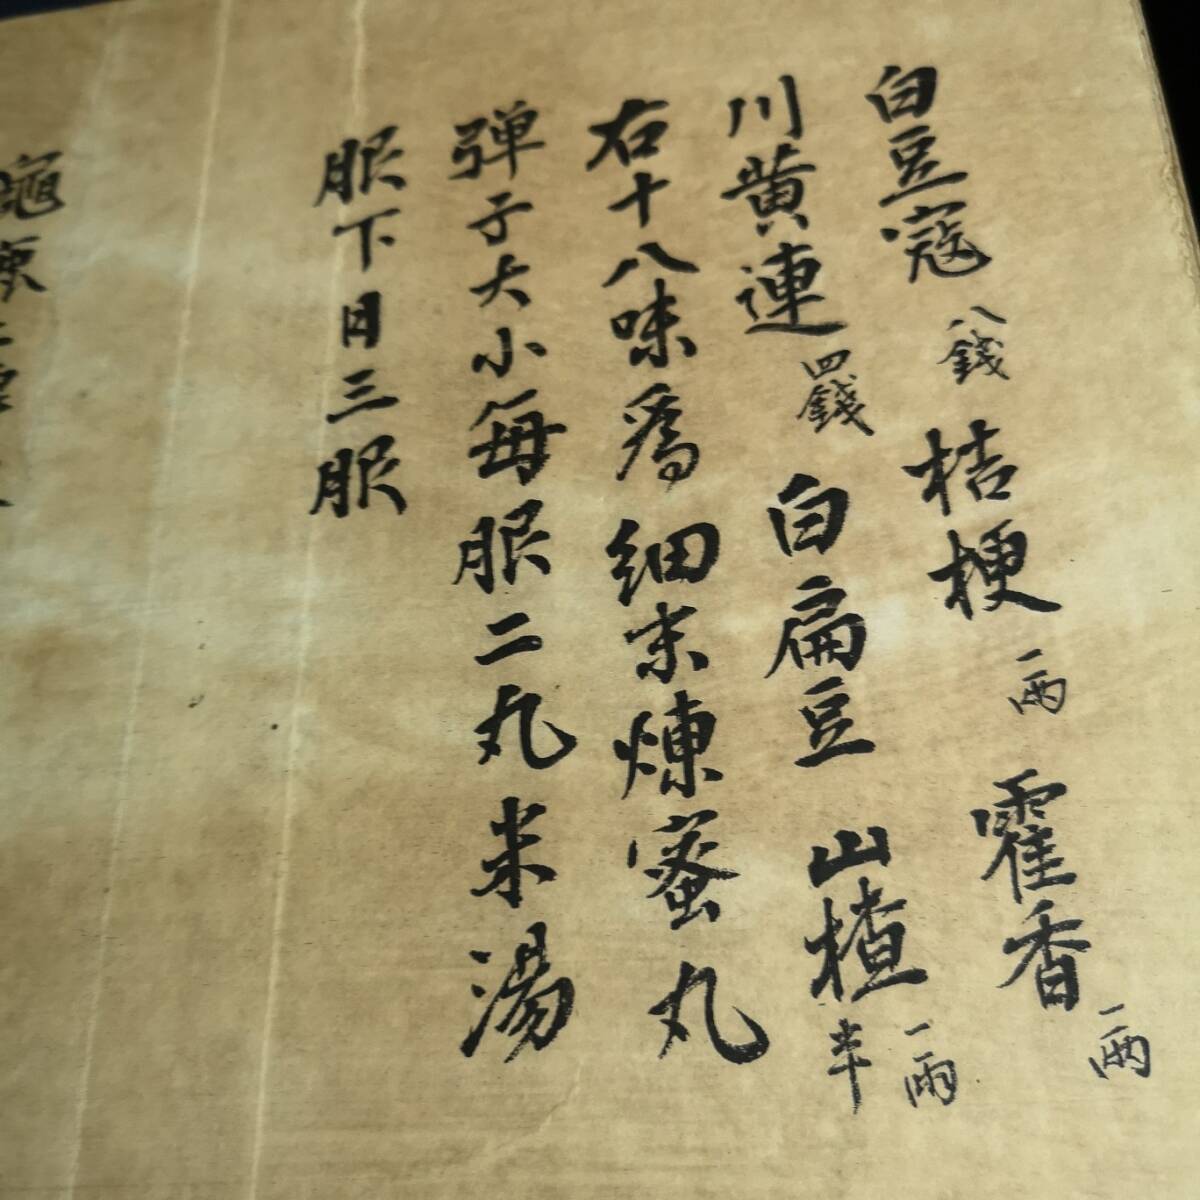 白豆寇八錢桔梗一兩霍香一兩
川黄連四錢白扁豆山楂一兩半
右十八味為細末煉蜜丸
弾子大小每服二丸米湯
服下日三服